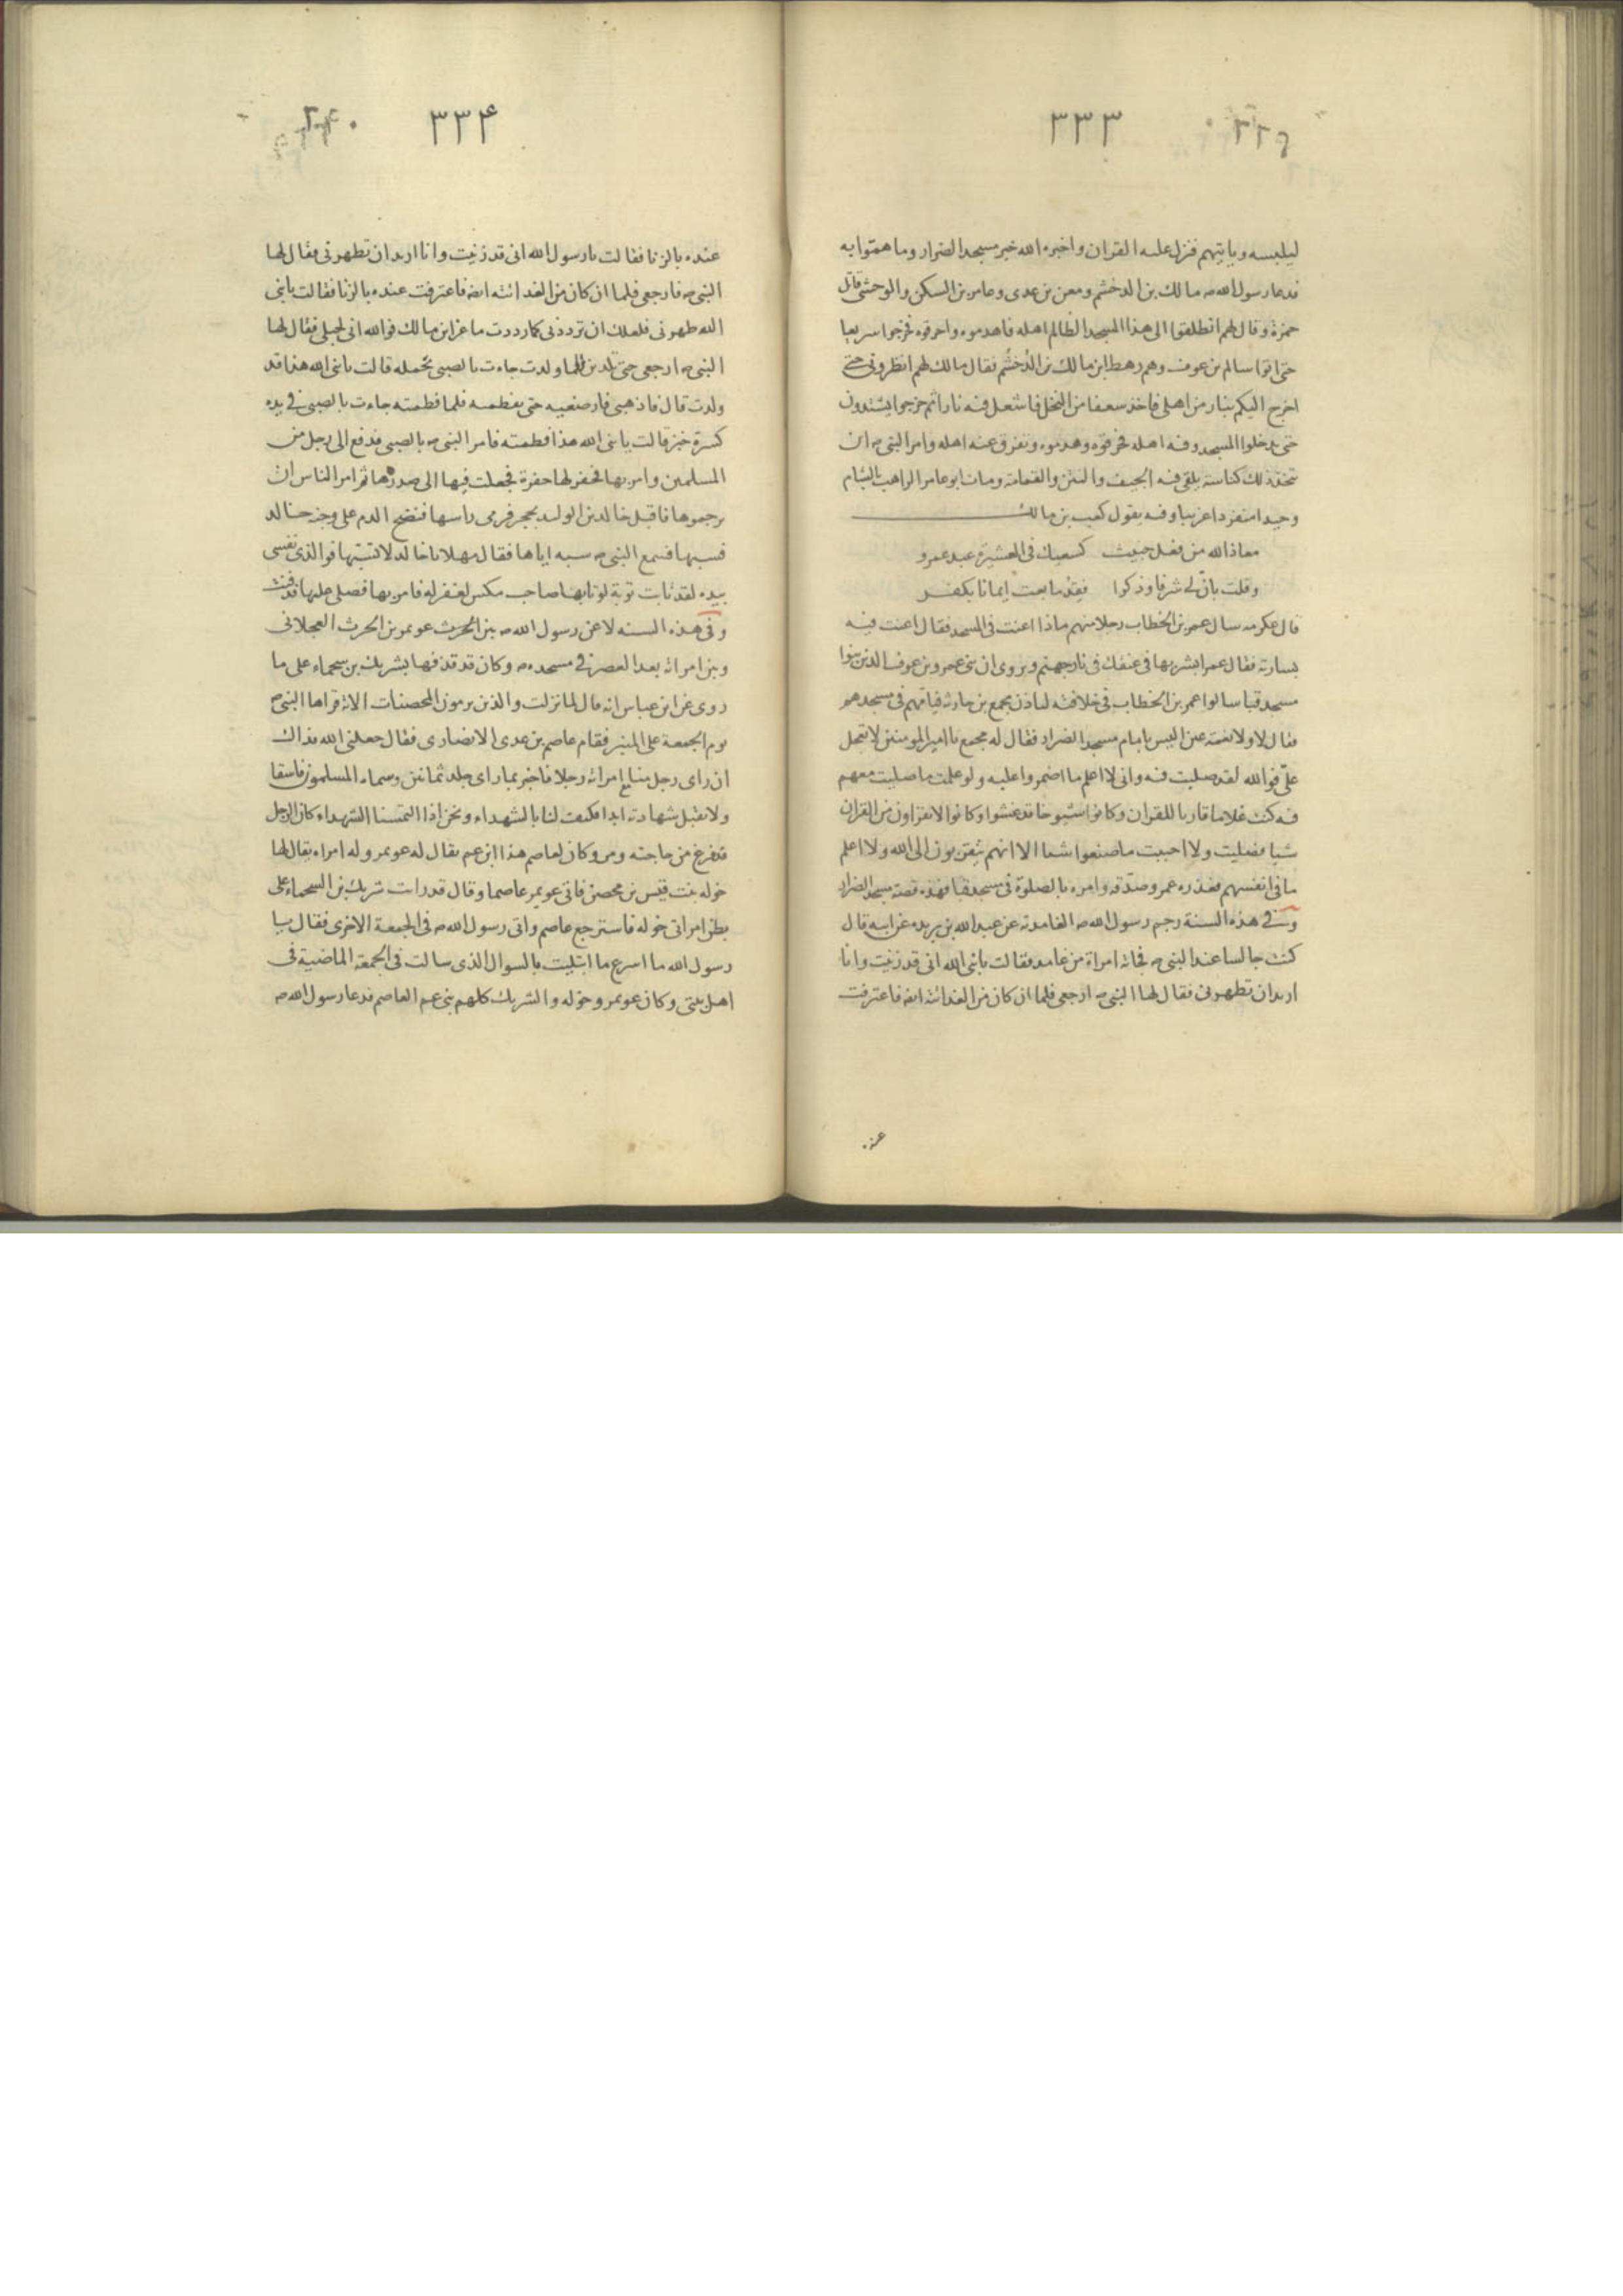 ٣٣٣
٢٣٩
ليلبسه وياتيهم فنزل عليه القران واخبره الله خبر مسجد الضرار وما هموا به
فدعا رسول الله ص مالك بن الدخشم ومعن بن عدى وعامر بن السكن والوحشى قاتل
حمزة وقال لهم انطلقوا الى هذا المسجد الظالم اهله فاهدموه واحرقوه فخرجوا سريعا
حتى اتوا سالم بن عوف وهم رهط ابن مالك بن الدخشم فقال مالك لهم انظرونى حتى
اخرج اليكم بنار من اهلى فاخذ سعفا من النخل فاشعل فيه نارا ثم خرجوا يشتدون
حتى يدخلوا المسجد وفيه اهله فحرقوه وهدموه وتفرق عنه اهله وامر النبى ص ان
تتخذ ذلك كناسة يلقى فيه الجيف والنتن والقمامة ومات ابو عامر الراهب بالشام
وحيدا منفردا غريبا وفيه يقول كعب بن مالك
معاذ الله من فعل خبيث كسعيك فى العشيرة عبد عمرو
وقلت بان لى شرفا وذكرا فقد ما بعت ايمانا بكفر
قال عكرمه سال عمر بن الخطاب رجلا منهم ماذا اعنت فى المسجد فقال اعنت فيه
بسارية فقال عمر ابشر بها فى عنقك فى نار جهنم وروى ان بنى عمرو بن عوف الذين بنوا
مسجد قبا سالوا عمر بن الخطاب فى خلافته لياذن مجمع بن حارثه فيامهم فى مسجدهم
فقال لا ولا نعمة عين اليس بامام مسجد الضرار فقال له مجمع يا امير المومنين لا تعجل
علىّ فوالله لقد صليت فيه وانى لا اعلم ما اضمروا عليه ولو علمت ما صليت معهم
فيه كنت غلاما قاريا للقران وكانوا شيوخا قد غشوا وكانوا لا يقراون من القران
شيا فصليت ولا احببت ما صنعوا شيا الا انهم يتقربون الى الله ولا اعلم
ما فى انفسهم فعذره عمر وصدّقه وامره بالصلوة فى مسجد قبا فهذه قصة مسجد الضرار
وفى هذه السنة رجم رسول الله ص الغامدية عن عبد الله بن بريده عن ابيه قال
كنت جالسا عند النبى ص فجاته امراة من غامد فقالت يا نبى الله انى قد زنيت وانا
اريد ان تطهرنى فقال لها النبى ص ارجعى فلما ان كان من الغد اتته ايضا فاعترفت
عنده
٣٣۴
٢۴٠
عنده بالزنا فقالت يا رسول الله انى قد زنيت وانا اريد ان تطهرنى فقال لها
النبى ص فارجعى فلما ان كان من الغد اتته ايضا فاعترفت عنده بالزنا فقالت يا نبى
الله طهرنى فلعلك ان ترددنى كما رددت ماعز ابن مالك فوالله انى لحبلى فقال لها
النبى ص ارجعى حتى تلدين فلما ولدت جاءت بالصبى تحمله قالت يا نبى الله هذا قد
ولدت قال فاذهبى فارضعيه حتى تفطميه فلما فطمته جاءت بالصبى فى يده
كسرة خبز قالت يا نبى الله هذا فطمته فامر النبى ص بالصبى فدفع الى رجل من
المسلمين وامر بها فحفر لها حفرة فجعلت فيها الى صدرها ثم امر الناس ان
يرجموها فاقبل خالد بن الوليد بحجر فرمى راسها فنضح الدم على وجه خالد
فسبها فسمع النبى ص سبه اياها فقال مهلا يا خالد لا تسبها فوالذى نفسى
بيده لقد تابت توبة لو تابها صاحب مكس لغفر له فامر بها فصلى عليها فدفنت
وفى هذه السنه لاعن رسول الله ص بين الحرث عويمر بن الحرث العجلانى
وبين امراته بعد العصر فى مسجده ص وكان قد قذفها بشريك بن سحماء على ما
روى عن ابن عباس انه قال لما نزلت والذين يرمون المحصنات الاية قراها النبى ص
يوم الجمعة على المنبر فقام عاصم بن عدى الانصارى فقال جعلنى الله فداك
ان راى رجل منا مع امراته رجلا فاخبر بما راى جلد ثمانين وسماه المسلمون فاسقا
ولا تقبل شهادته ابدا فكيف لنا بالشهداء ونحن اذا التمسنا الشهداء كان الرجل
قد فرغ من حاجته ومر وكان لعاصم هذا ابن عم يقال له عويمر وله امراه يقال لها
خوله بنت قيس بن محصن فاتى عويمر عاصما وقال قد رايت شريك بن السحماء على
بطن امراتى خوله فاسترجع عاصم واتى رسول الله ص فى الجمعة الاخرى فقال يا
رسول الله ما اسرع ما ابتليت بالسوال الذى سالت فى الجمعة الماضية فى
اهل بيتى وكان عويمر وخوله والشريك كلهم بنى عم العاصم فدعا رسول الله ص